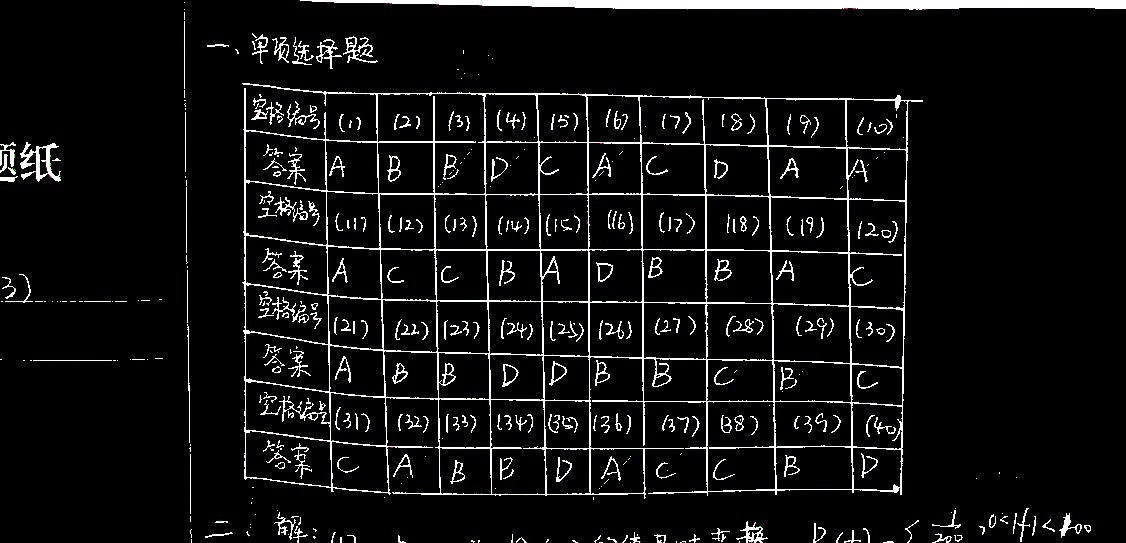 一、单项选择题
空格编号 (1) (2) (3) (4) (5) (6) (7) (8) (9) (10)
答案 A B B D C A C D A A
题纸
空格编号 (11) (12) (13) (14) (15) (16) (17) (18) (19) (20)
答案 A C C B A D B B A C
3)
空格编号 (21) (22) (23) (24) (25) (26) (27) (28) (29) (30)
答案 A B B D D B B C B C
空格编号 (31) (32) (33) (34) (35) (36) (37) (38) (39) (40)
答案 C A B B D A C C B D
二、解: (1)